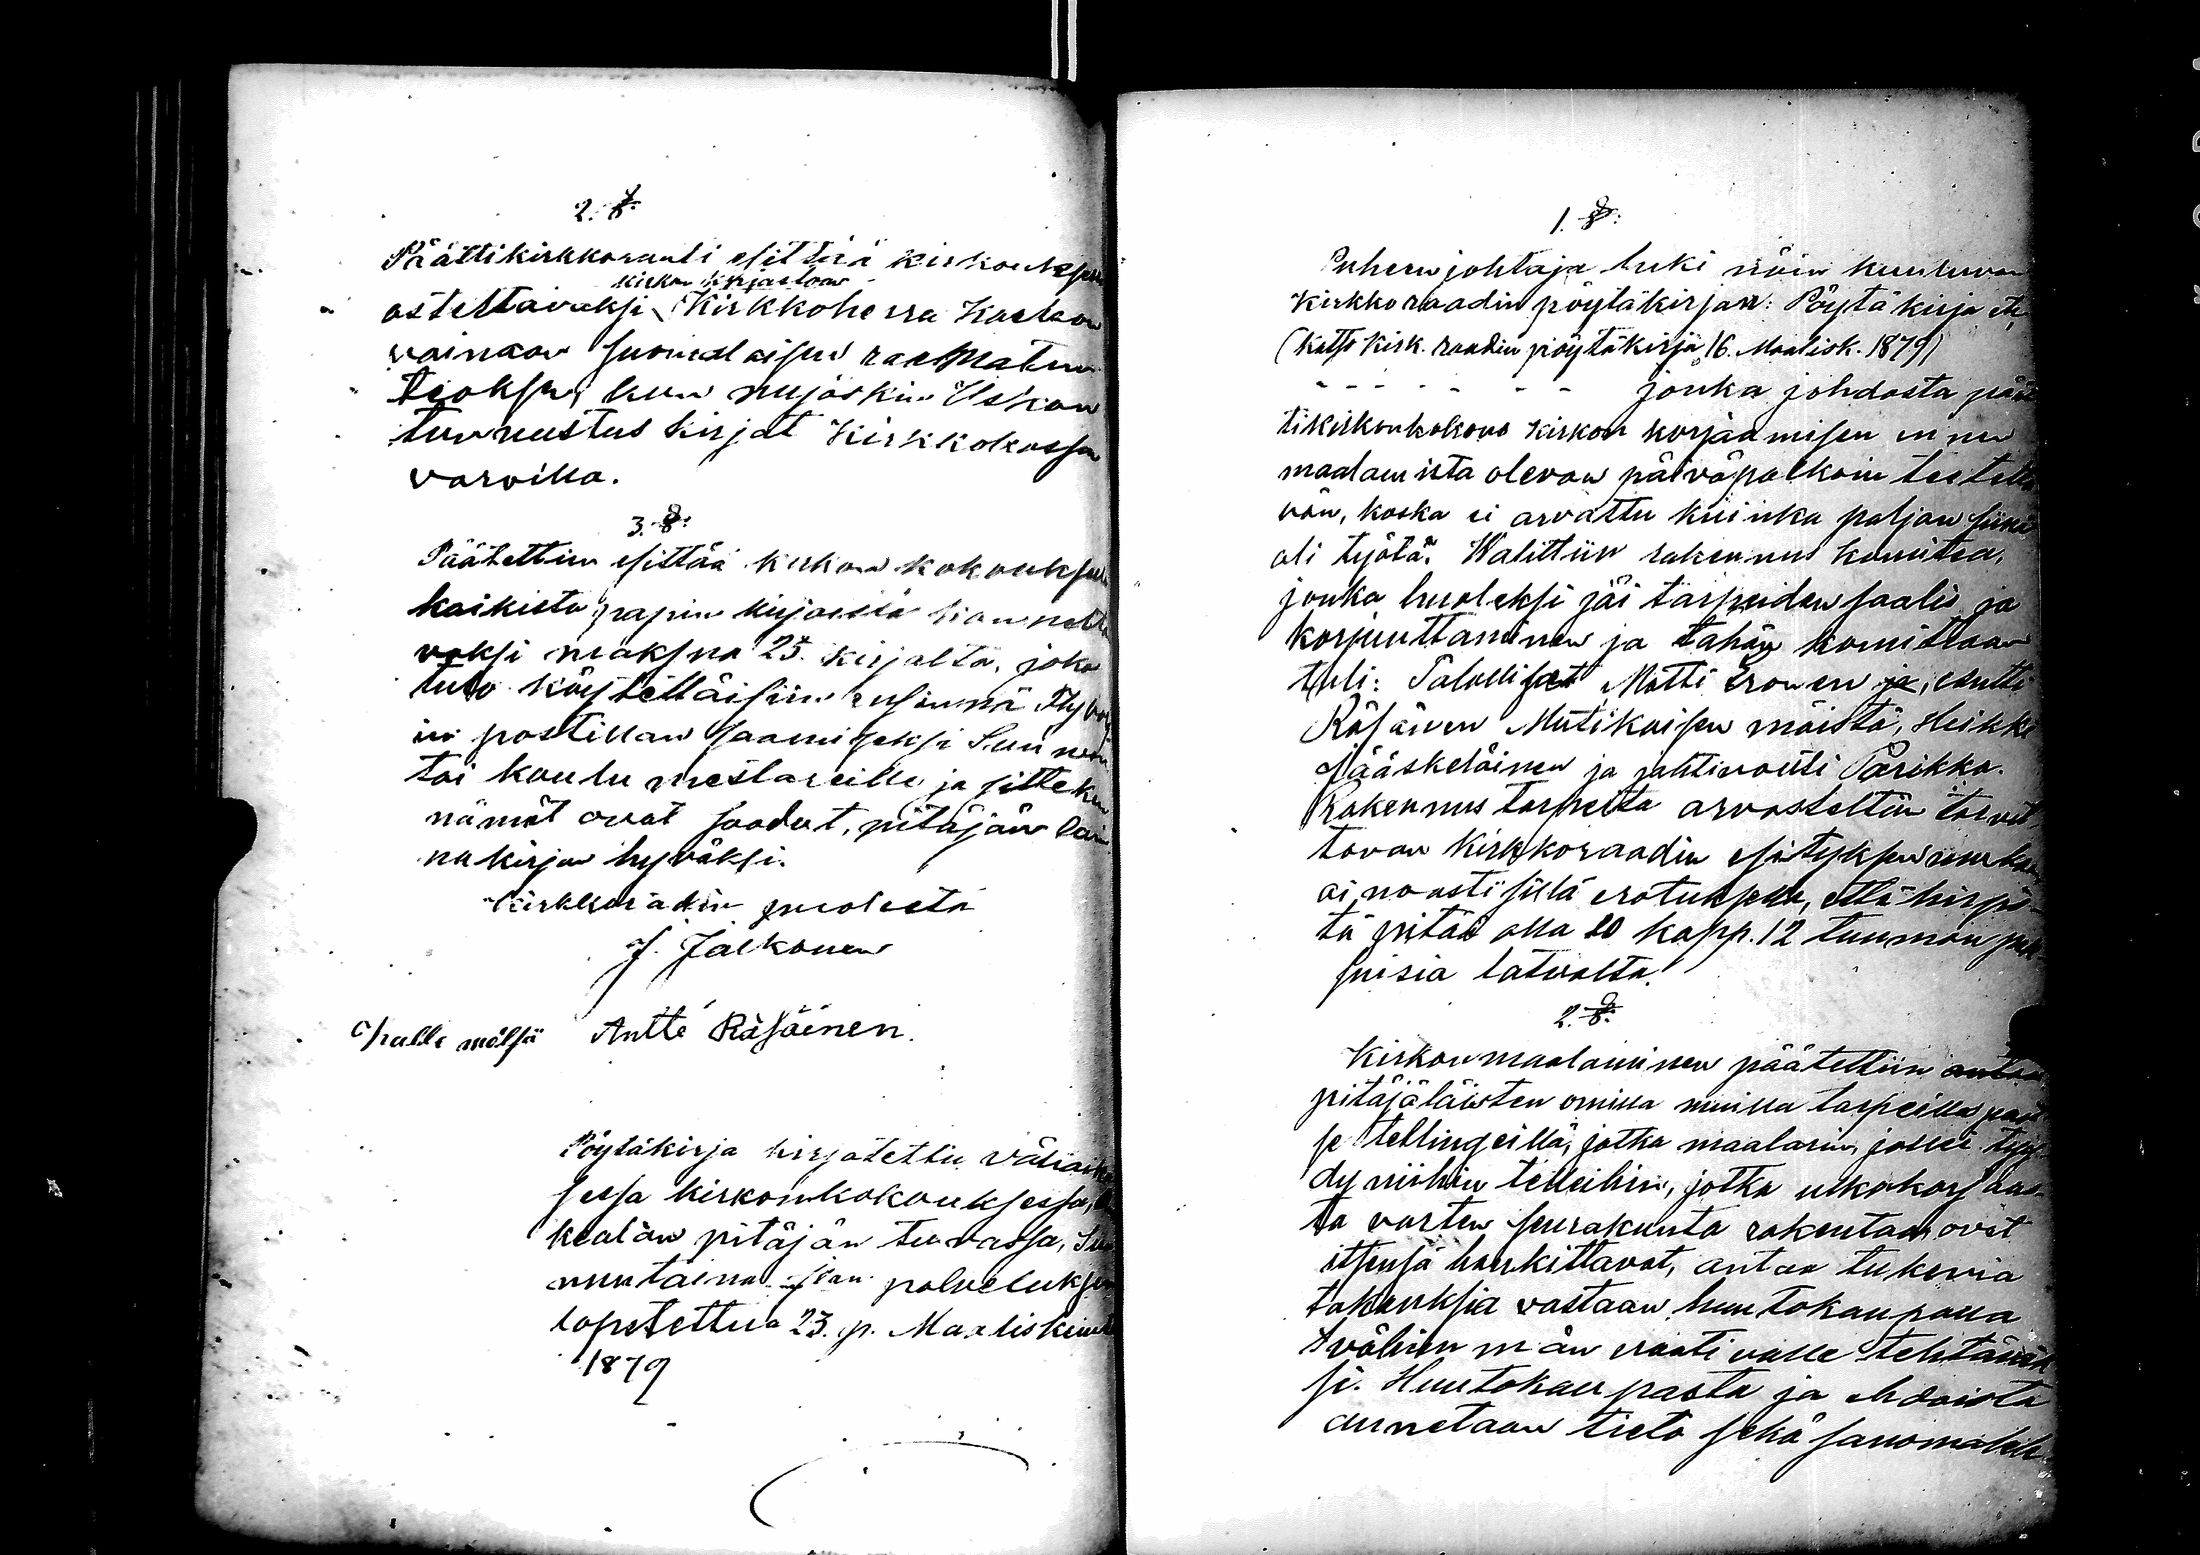 2. §.
Päättikirkkoraati esittää kirkonkokouksen
kirkon kirjastoon
ostettavaksi Kirkkoherra
vainaan suomalaisen raamatun
teoksen, kun myöskin Uskon
tunnustus kirjat Kirkkokassan
varoilla.
3. §.
Päätettiin esittää kirkon kokouksessa
kaikista papin kirjoista kannetta
vaksi maksua 25. kirjalta, joka
tulo käytettäisiin
in postillan saamiseksi
tai koulu mestareille ja sitteku
nämät ovat saadut, pitäjän lai
nakirjan hyväksi.
Kirkkoraadin puolesta
J. Jalkonen
mälsä Antti Räsäinen.
Pöytäkirja kirjotettu väliaika
sessa kirkonkokouksessa,
pitäjän tuvassa, Su
nuntaina Jum. palveluksen
lopetettua 23. p. Maaliskuuta
1879
1. §.
Puheenjohtaja luki näin kuuluvan
Kirkkoraadin pöytäkirjan: Pöytäkirja
(katso kirk. raadin pöytäkirja 16. Maalisk. 1879)
- - - - - - - jonka johdosta pää
tikirkonkokous kirkon korjaamisen ennen
maalamista olevan päiväpalkoin teetettä
vän, koska ei arvattu kuinka paljon siinä
oli työtä. Walittiin rakennus komitea,
jonka huoleksi jäi tarpeiden saalis ja
korjuuttaminen ja tähän komiteaan
tuli: Talolliset Matti Eronen ja, Antti
Räsänen Mutikaisen mäistä, Heikki
Jääskeläinen ja jahtivouti Parikka.
Rakennus tarpeita arvosteltiin tarvit
tavan kirkkoraadin esityksen mukaan
ainoasti sillä erotuksella, että hirsi
tä pitää olla 20 kapp. 12 tuuman pak
suisia latvalta.
2. §.
Kirkon maalaminen päätettiin antaa
pitäjäläisten omilla muilla tarpeilla paitsi
se tellingeillä, jotka maalarin, jollei tyy
dy niihin telleihin, jotka ulkokorjaus
ta varten seurakunta rakentaa, ovat
itsensä hankittavat, antaa tukevia
takauksia vastaan huutokaupalla
vähimmän vaativalle tehtäväk
si. Huutokaupasta ja ehdoista
annetaan tieto sekä sanomaleh